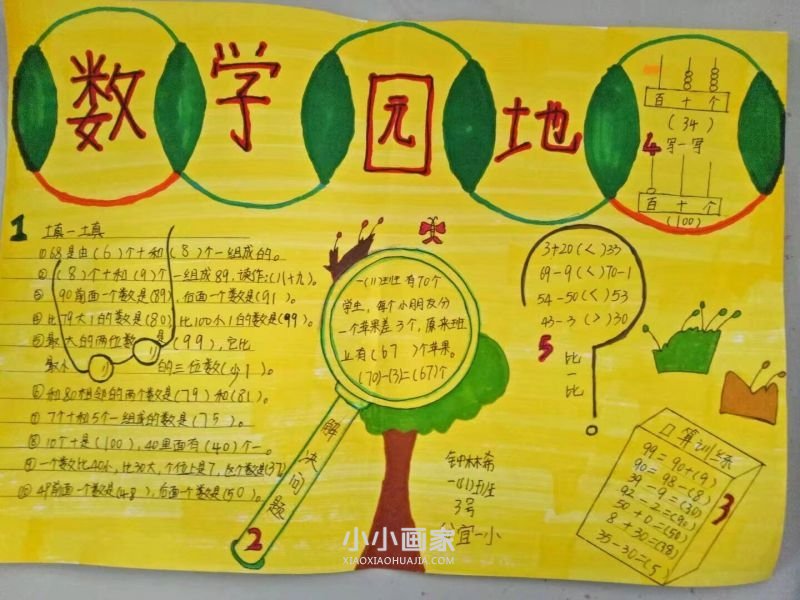 数学园地
百 十 个
(34)
4 写一写
百 十 个
(100)
1 填一填
①68是由(6)个十和(8)个一组成的。
②(8)个十和(9)个一组成89,读作:(八十九)。
③90前面一个数是(89),后面一个数是(91)。
④比79大1的数是(80),比100小1的数是(99)。
⑤最大的两位数是(99),它比
最小的三位数(少1)。
⑥和80相邻的两个数是(79)和(81)。
⑦7个十和5个一组成的数是(75)。
⑧10个十是(100),40里面有(40)个一。
⑨一个数比40小,比30大,个位上是7,这个数是(37)
⑩49前面一个数是(48),后面一个数是(50)。
一(1)班有70个
学生,每个小朋友分
一个苹果差3个,原来班
上有(67)个苹果。
(70)-(3)=(67)个
解决问题
2
3+20(<)33
69-9(<)70-1
54-50(<)53
43-3(>)30
5 比一比
口算训练
99=90+(9)
90=98-(8)
39-9=(30)
92-2=(90)
50+0=(50)
8+30=(38)
35-30=(5)
3
一(1)班
3号
分宜一小
小小画家
XIAOXIAOHUAJIA.COM